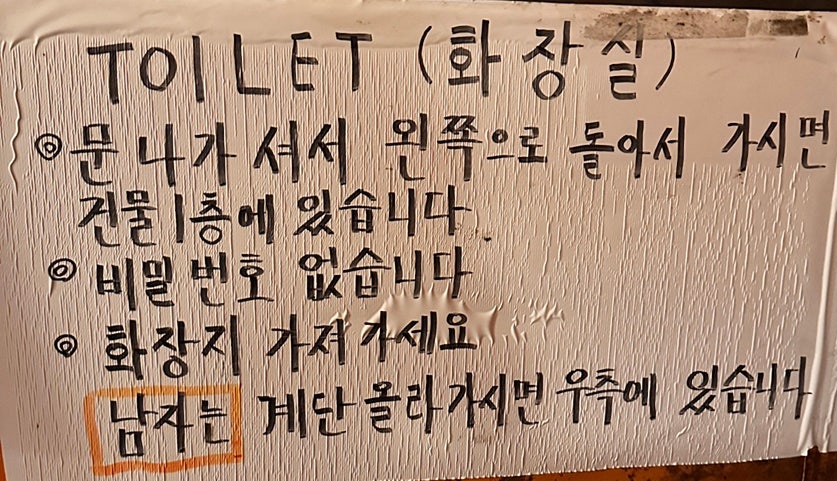 TOILET (화장실)
◎ 문 나가셔서 왼쪽으로 돌아서 가시면
건물 1층에 있습니다.
◎ 비밀번호 없습니다
◎ 화장지 가져가세요
남자는 계단 올라가시면 우측에 있습니다